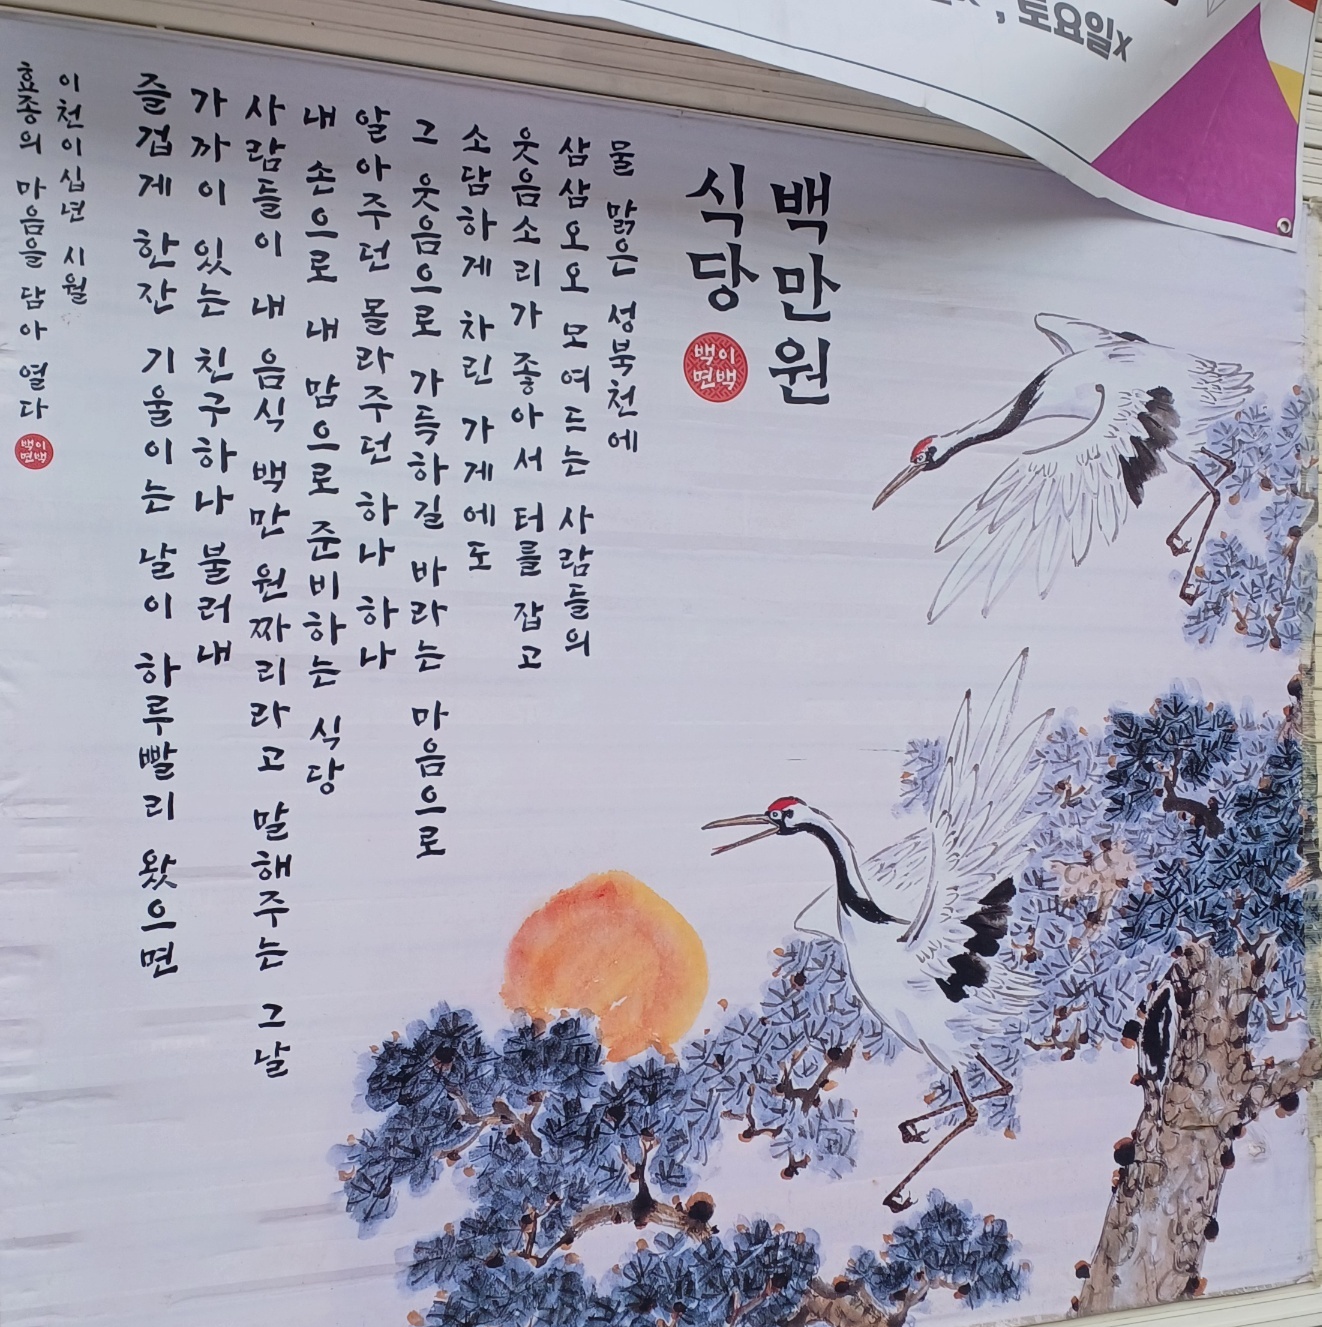 , 토요일x
백만원
식당
백이
면백
물 맑은 성북천에
삼삼오오 모여드는 사람들의
웃음소리가 좋아서 터를 잡고
소담하게 차린 가게에도
그 웃음으로 가득하길 바라는 마음으로
알아주던 몰라주던 하나 하나
내 손으로 내 맘으로 준비하는 식당
사람들이 내 음식 백만 원짜리라고 말해주는 그날
가까이 있는 친구하나 불러내
즐겁게 한잔 기울이는 날이 하루빨리 왔으면
이천이십년 시월
효종의 마음을 담아 열다
백이
면백